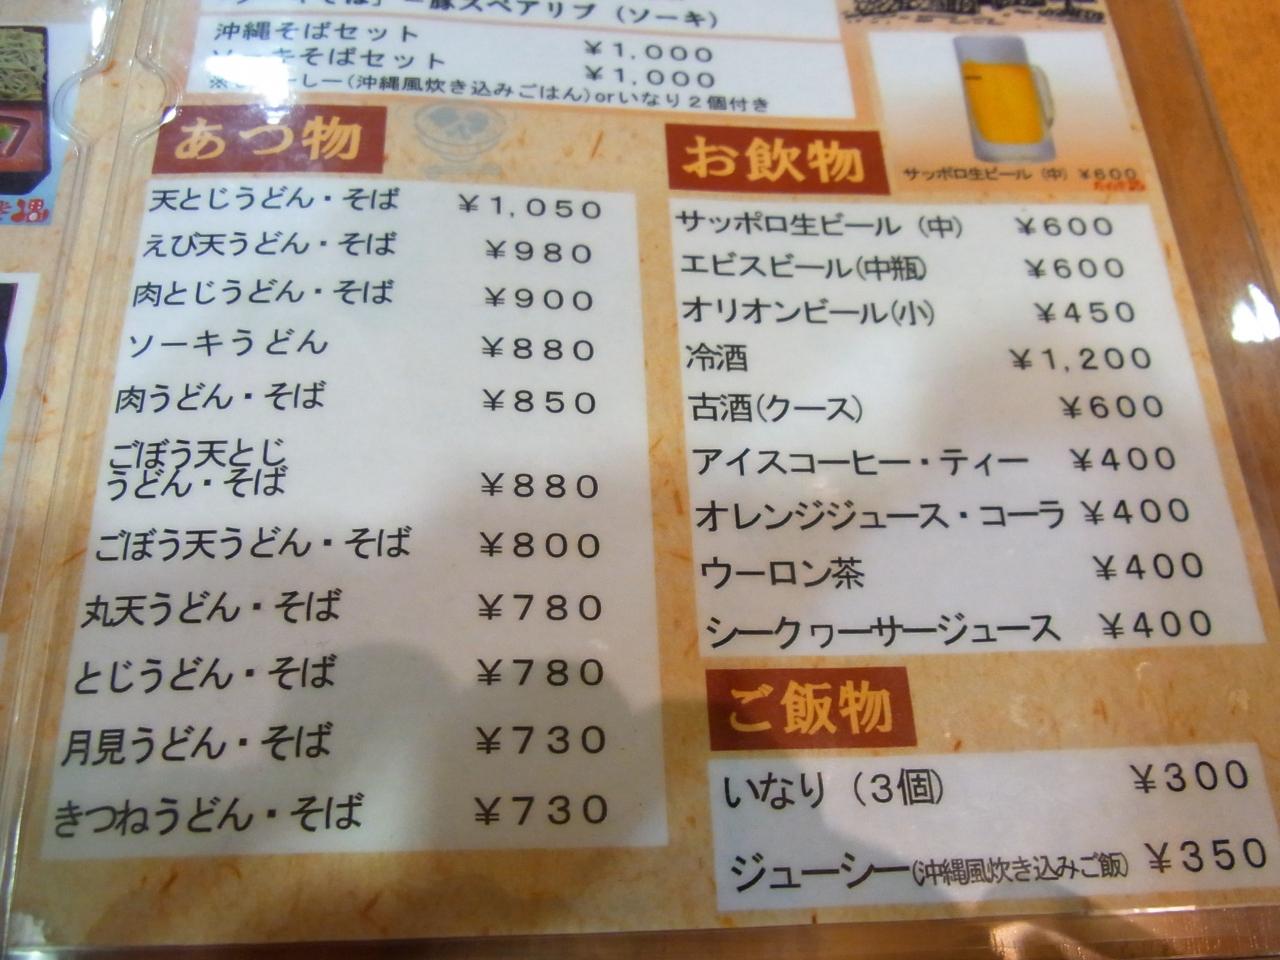 豚スペアリブ（ソーキ）
沖縄そばセット ¥1,000
ソーキそばセット ¥1,000
しー(沖縄風炊き込みごはん)orいなり２個付き
サッポロ生ビール（中）¥600
あつ物
天とじうどん・そば ¥1,050
えび天うどん・そば ¥980
肉とじうどん・そば ¥900
ソーキうどん ¥880
肉うどん・そば ¥850
ごぼう天とじ
うどん・そば ¥880
ごぼう天うどん・そば ¥800
丸天うどん・そば ¥780
とじうどん・そば ¥780
月見うどん・そば ¥730
きつねうどん・そば ¥730
お飲物
サッポロ生ビール（中） ¥600
エビスビール(中瓶) ¥600
オリオンビール(小) ¥450
冷酒 ¥1,200
古酒(クース) ¥600
アイスコーヒー・ティー ¥400
オレンジジュース・コーラ ¥400
ウーロン茶 ¥400
シークヮーサージュース ¥400
ご飯物
いなり（3個） ¥300
ジューシー(沖縄風炊き込みご飯) ¥350